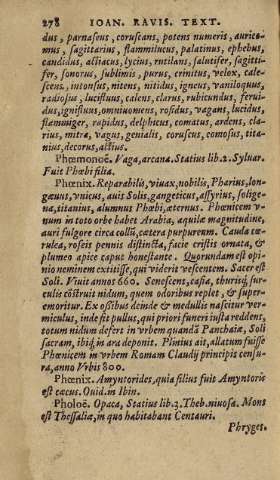 278 IOAN. RAVIS. TEXT.
dus, parnaseus, coruscans, potens numeris, aurico-
mus, sagittarius, flammilucus, palatinus, ephebus,
candidus, actiacus, lycius, rutilans, salutifer, sagitti-
fer, sonorus, sublimis, purus, crinitus, velox, cale-
scens, intonsus, nitens, nitidus, igneus, vaniloquus,
radiosus, lucifluus, calens, clarus, rubicundus, ferui-
dus, ignifluus, omniuomens, rosidus, vagans, lucidus,
flammiger, rapidus, delphicus, comatus, ardens, cla-
rius, mitra, vagus, genialis, coruscus, comosus, tita-
nius, decorus, altius.
Phœmonoë. Vaga, arcana. Statius lib. 2. Syluar.
Fuit Phœbi filia.
Phœnix. Reparabilis, viuax, nobilis, Pharius, lon-
gæuus, vnicus, auis Solis, gangeticus, assyrius, solige-
na, titanius, alumnus Phœbi, æternus. Phœnicem v-
num in toto orbe habet Arabia, aquilæ magnitudine,
auri fulgore circa collū, cætera purpureum. Cauda cœ-
rulea, roseis pennis distincta, facie cristis ornata, &
plumeo apice caput honestante. Quorundam est opi-
nio neminem extitisse, qui viderit vescentem. Sacer est
Soli. Viuit annos 660. Senescens, casia, thurisq́; sur-
culis cōstruit nidum, quem odoribus replet, & super-
emoritur. Ex ossibus deinde & medullis nascitur ver-
miculus, inde fit pullus, qui priori funeri iusta reddens,
totum nidum defert in vrbem quandā Panchaiæ, Soli
sacram, ibiq́; in ara deponit. Plinius ait, allatum fuisse
Phœnicem in vrbem Romam Claudij principis censu-
ra, anno Vrbis 800.
Phœnix. Amyntorides, quia filius fuit Amyntoris
est cæcus. Ouid. in Ibin.
Pholoë. Opaca, Statius lib. 3. Theb. niuosa. Mons
est Thessaliæ, in quo habitabant Centauri.
Phryget.